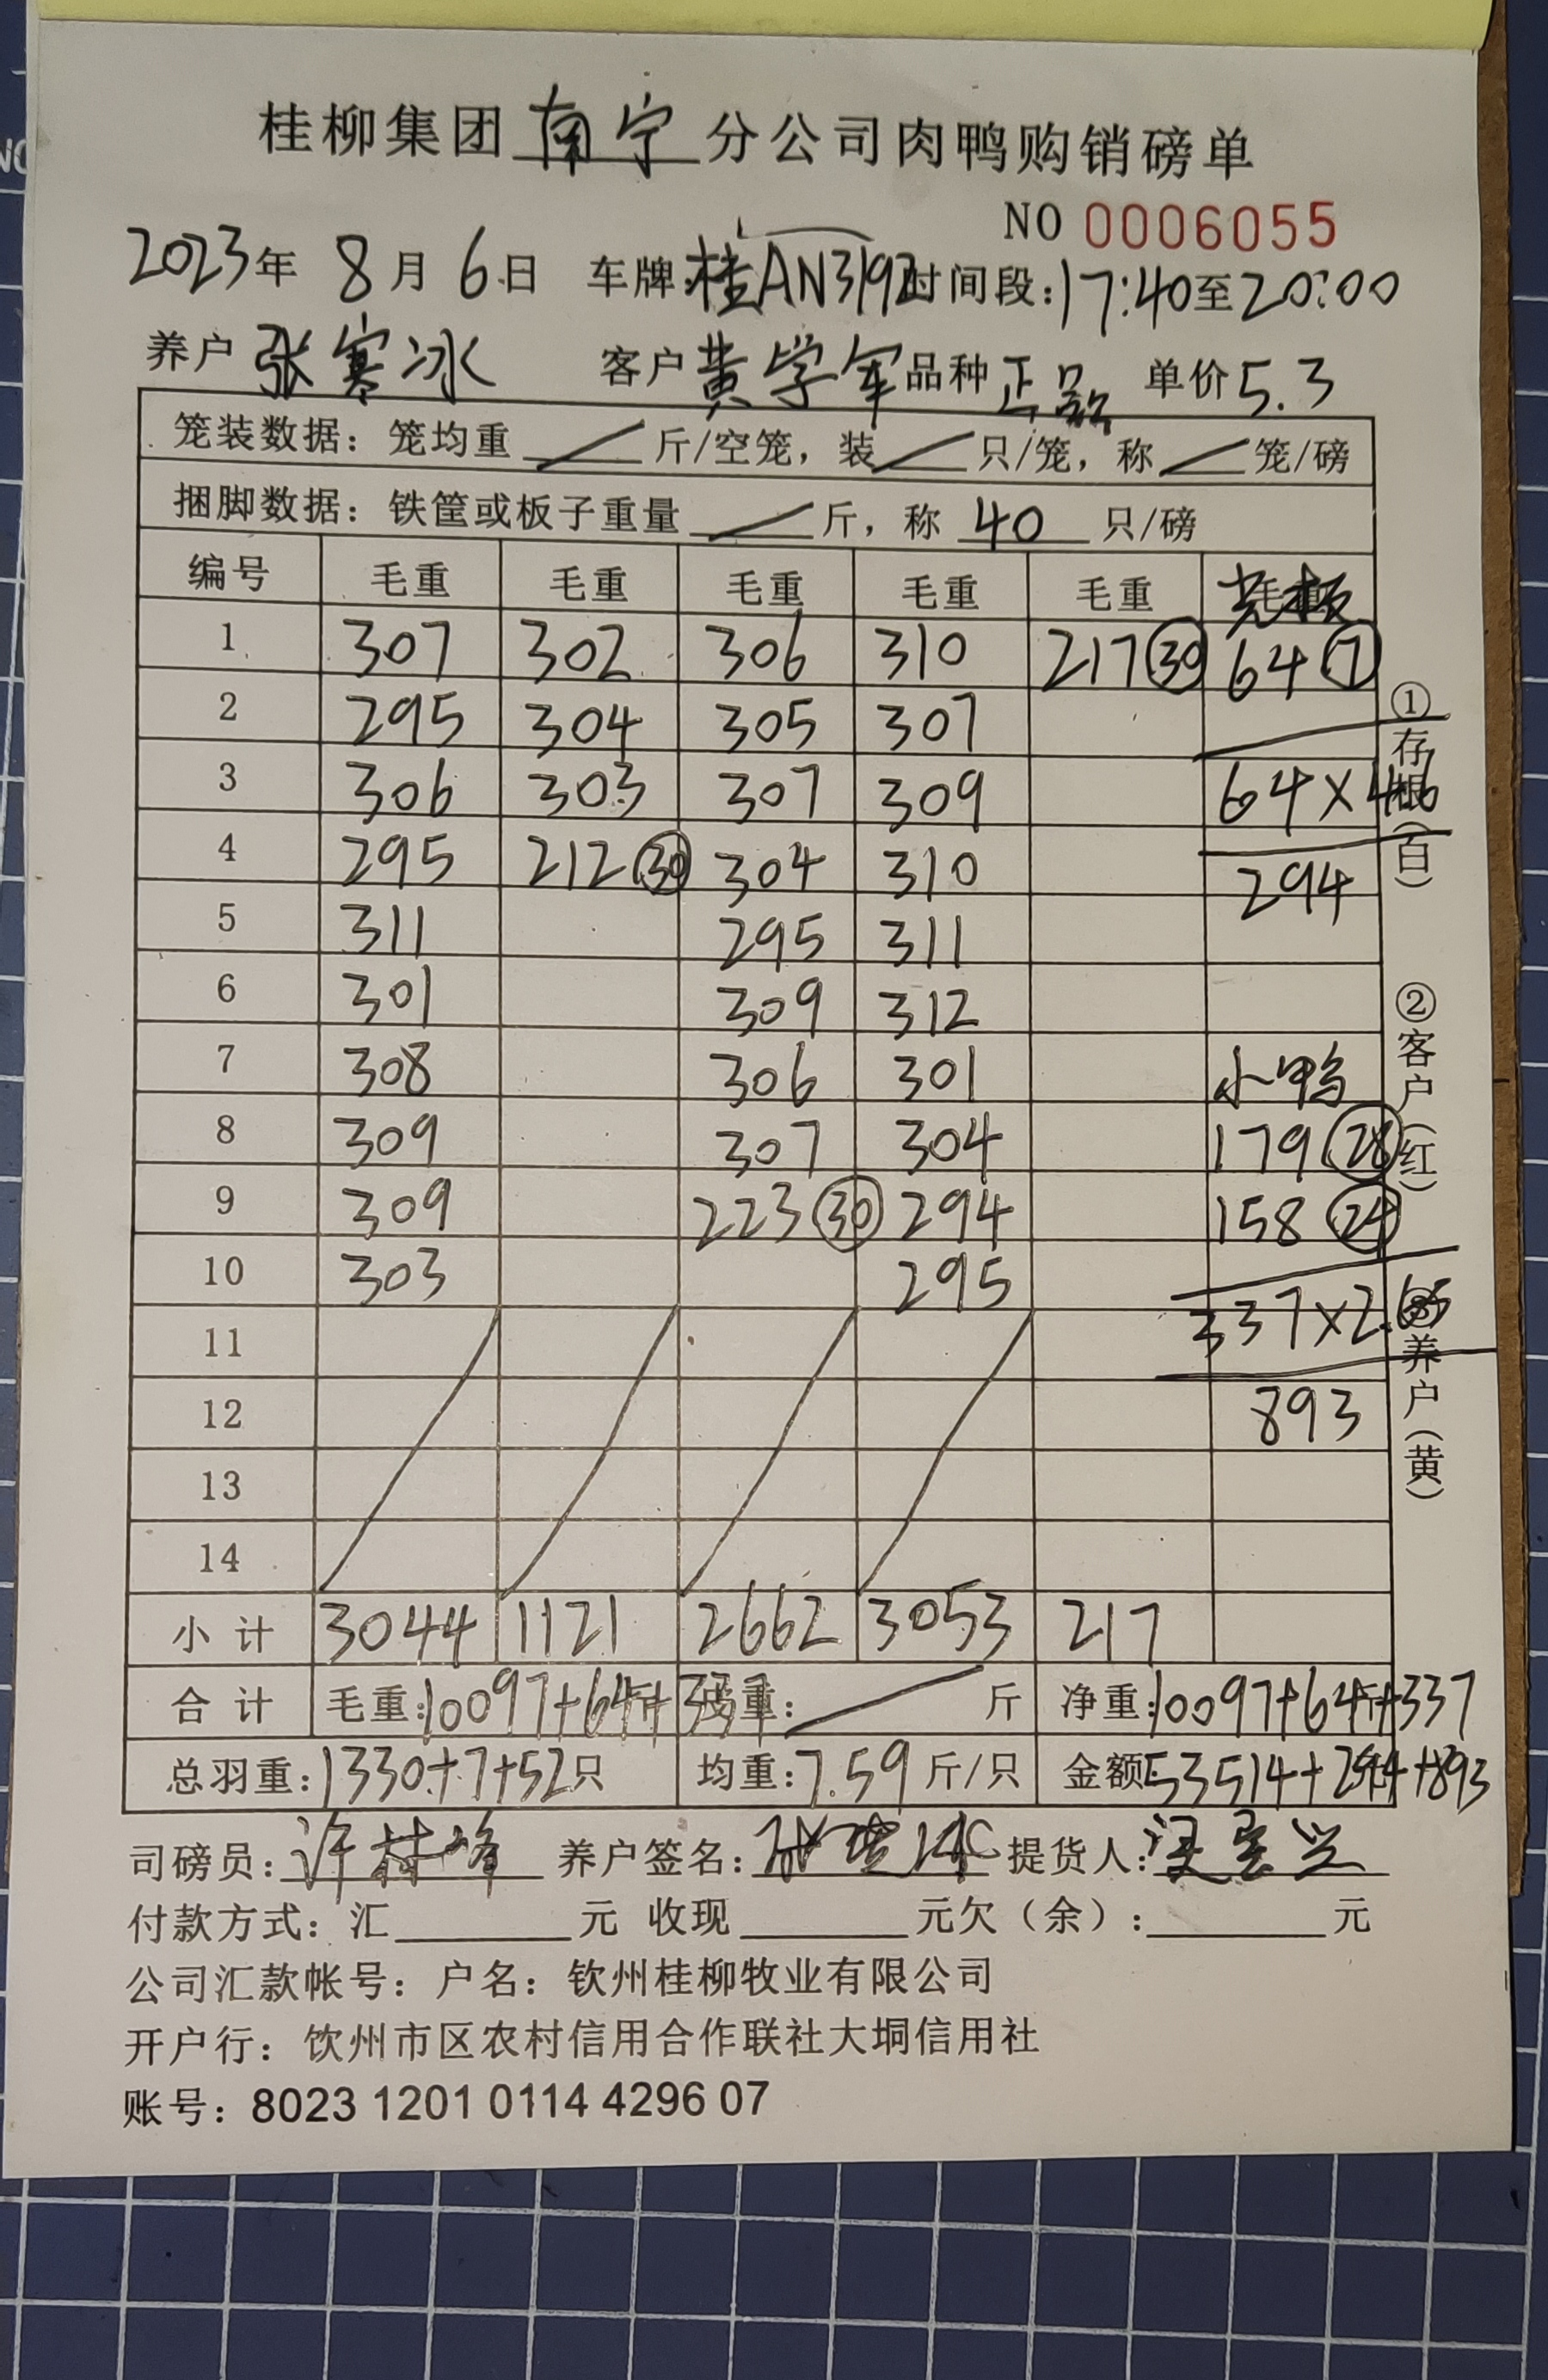 桂柳集团南宁分公司肉鸭购销磅单
NO 0006055
2023年 8月 6日 车牌:桂AN3192 时间段:17:40至20:00
养户 张寒冰 客户 黄学军 品种 正品 单价 5.3
笼装数据：笼均重 斤/空笼，装 只/笼，称 笼/磅
捆脚数据：铁筐或板子重量 斤，称 40 只/磅
编号 毛重 毛重 毛重 毛重 毛重 光板
1 307 302 306 310 217 30 64 7
2 295 304 305 307
3 306 303 307 309 64×4.6
4 295 212 30 304 310 294
5 311 295 311
6 301 309 312
7 308 306 301 小鸭
8 309 307 304 179 28
9 309 223 30 294 158 24
10 303 295
11 337×2.65
12 893
13
14
小计 3044 1121 2662 3053 217
合计 毛重:10097+64+337 皮重: 斤 净重:10097+64+337
总羽重:1330+7+52只 均重:7.59斤/只 金额53514+294+893
司磅员: 养户签名: 提货人:
付款方式：汇 元 收现 元欠（余）: 元
公司汇款帐号：户名：钦州桂柳牧业有限公司
开户行：钦州市区农村信用合作联社大垌信用社
账号：8023 1201 0114 4296 07
①存根（白） ②客户（红） ③养户（黄）